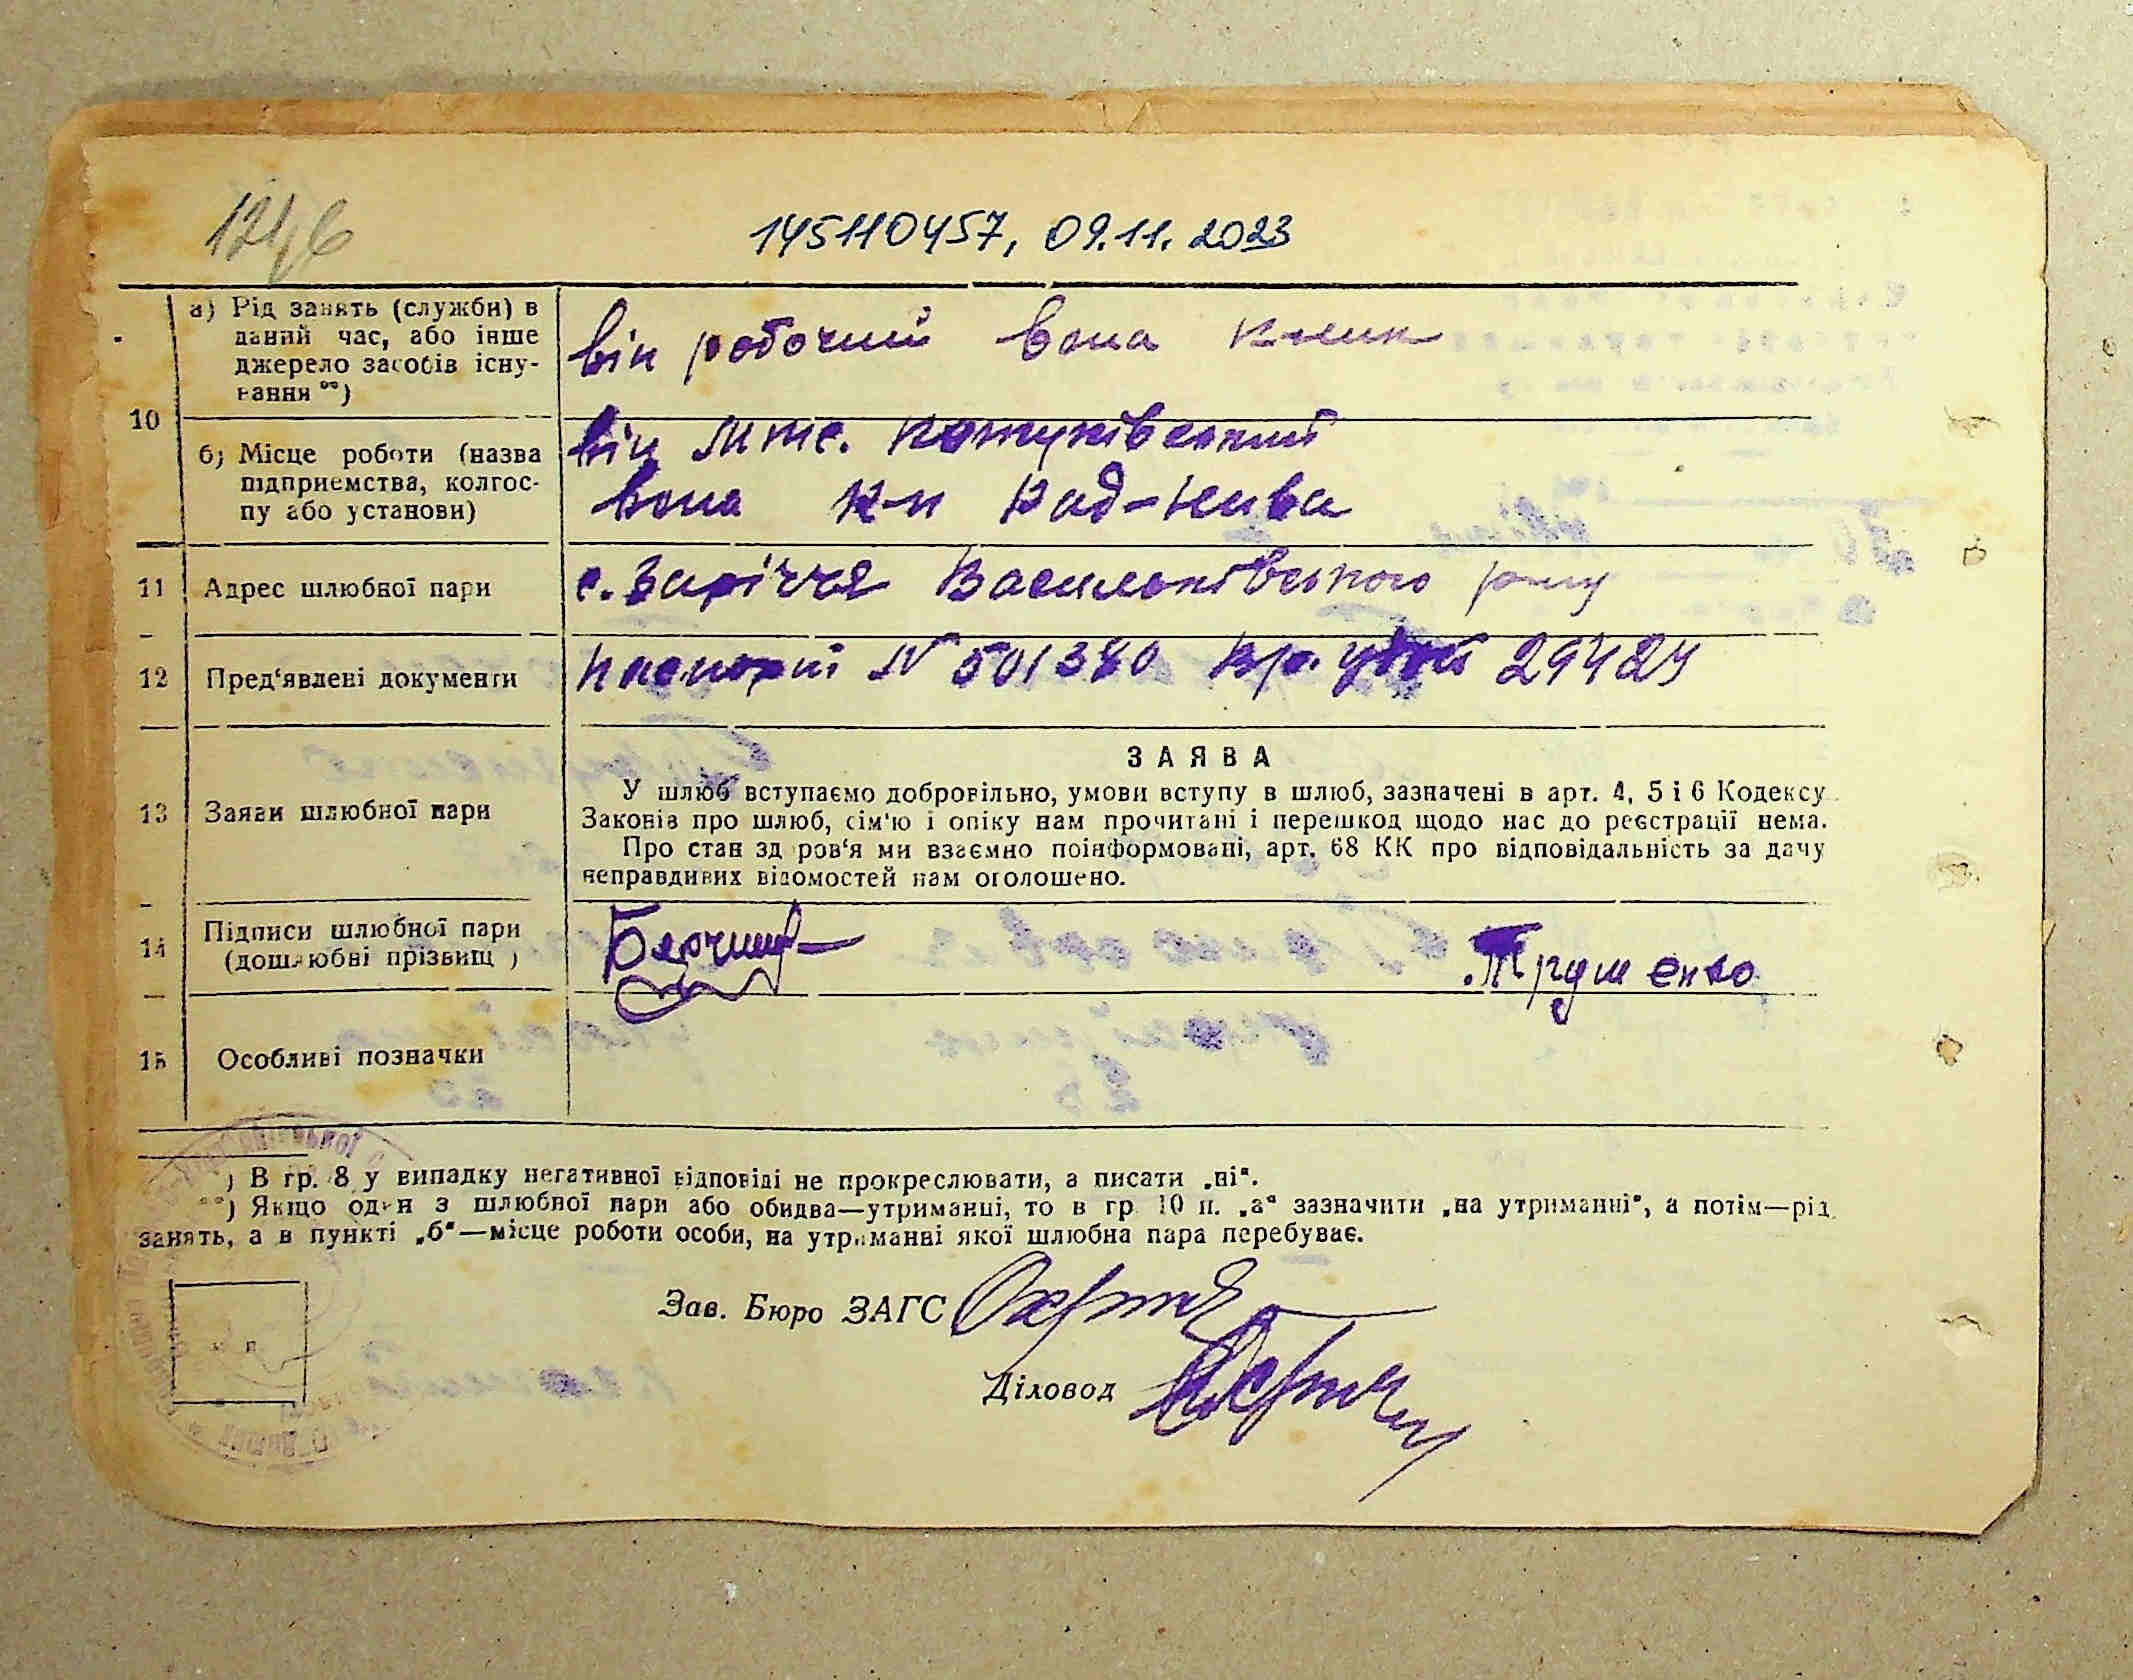 124б
145110457, 09.11.2023
10
а) Рід занять (служби) в
даний час, або інше
джерело засобів існу-
вання **)
він робочий вона
б) Місце роботи (назва
підприємства, колгос-
пу або установи)
він мтс.
вона к-п Рад-Нива
11 Адрес шлюбної пари
с. Заріччя Васильківського р-ну
12 Пред'явлені документи
Паспорт N 501380 29424
13 Заяви шлюбної пари
ЗАЯВА
У шлюб вступаємо добровільно, умови вступу в шлюб, зазначені в арт. 4, 5 і 6 Кодексу
Законів про шлюб, сім'ю і опіку нам прочитані і перешкод щодо нас до реєстрації нема.
Про стан здоров'я ми взаємно поінформовані, арт. 68 КК про відповідальність за дачу
неправдивих відомостей нам оголошено.
14 Підписи шлюбної пари
(дошлюбні прізвищ )
Трушенко
15 Особливі позначки
) В гр. 8 у випадку негативної відповіді не прокреслювати, а писати „ні".
**) Якщо один з шлюбної пари або обидва—утриманці, то в гр 10 п. „а" зазначити „на утриманні", а потім—рід
занять, а в пункті „б"—місце роботи особи, на утриманні якої шлюбна пара перебуває.
Зав. Бюро ЗАГС
Діловод
м п